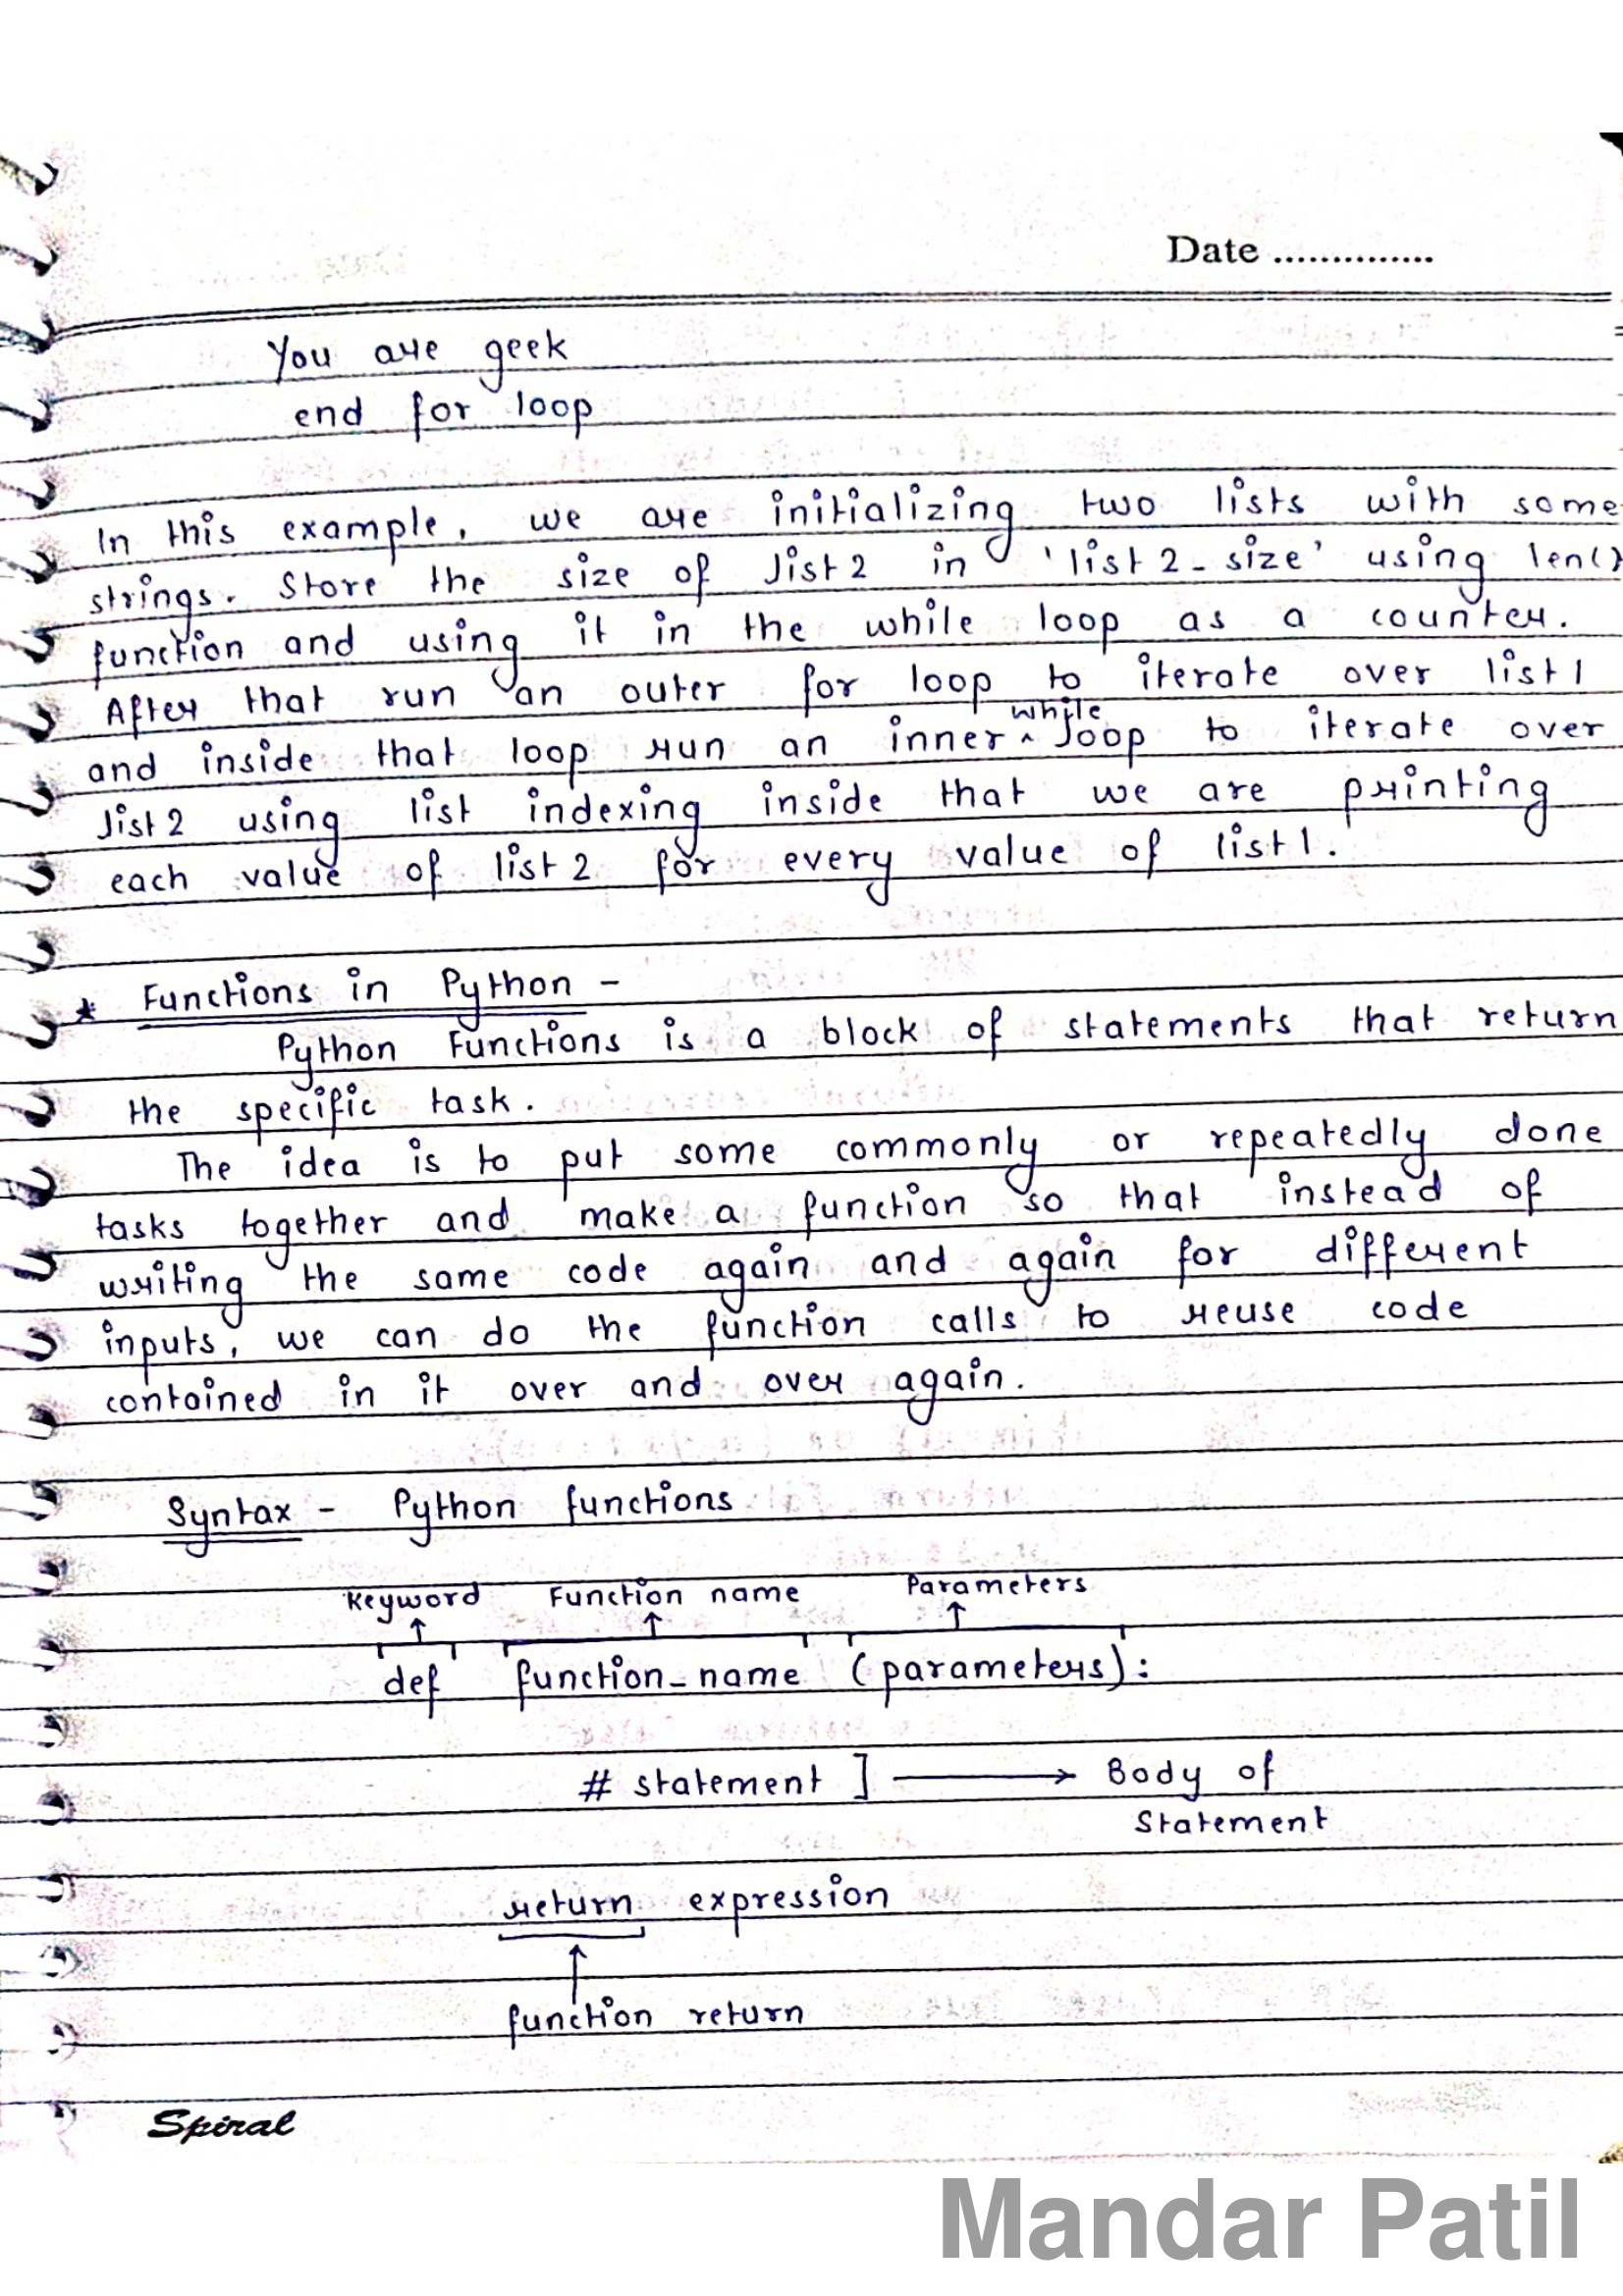 Date ..............
You are geek
end for loop
In this example, we are initializing two lists with some
strings. Store the size of list2 in 'list2_size' using len()
function and using it in the while loop as a counter.
After that run an outer for loop to iterate over list1
and inside that loop run an inner ^ while loop to iterate over
list2 using list indexing inside that we are printing
each value of list2 for every value of list1.
* Functions in Python -
Python Functions is a block of statements that return
the specific task.
The idea is to put some commonly or repeatedly done
tasks together and make a function so that instead of
writing the same code again and again for different
inputs, we can do the function calls to reuse code
contained in it over and over again.
Syntax - Python functions
Keyword Function name Parameters
def function_name (parameters):
# statement ] → Body of
Statement
return expression
function return
Spiral
Mandar Patil